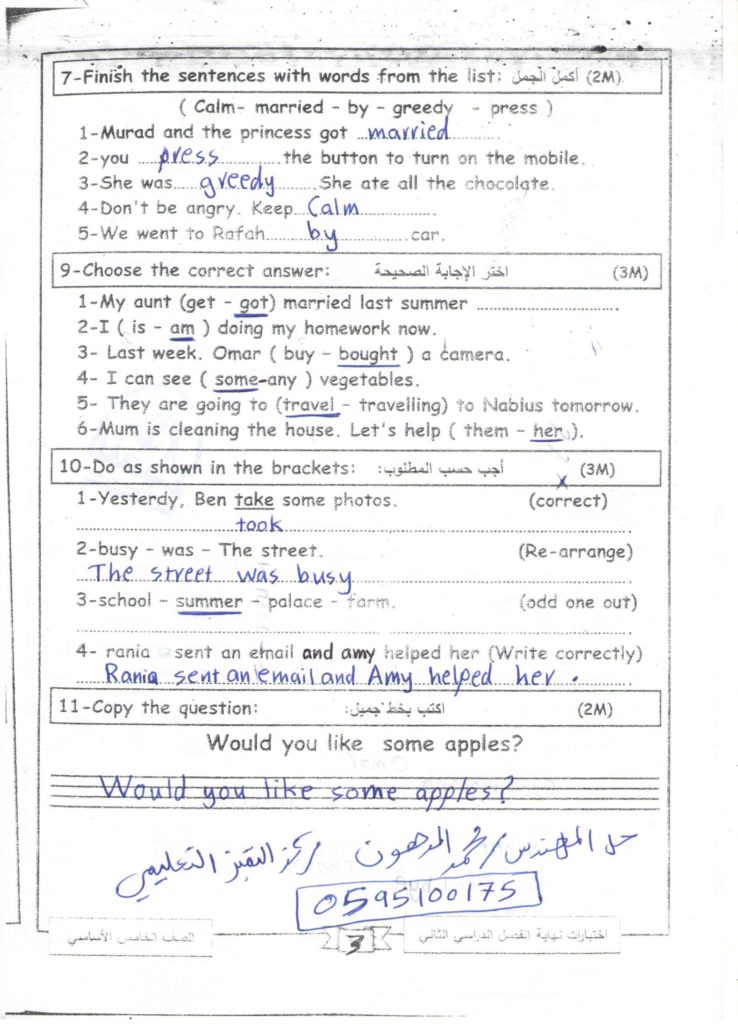 7-Finish the sentences with words from the list: أكمل الجمل (2M)
( Calm- married - by - greedy - press )
1-Murad and the princess got ..married..........
2-you ...press............the button to turn on the mobile.
3-She was.....greedy.......She ate all the chocolate.
4-Don't be angry. Keep..Calm................
5-We went to Rafah..........by.............car.
9-Choose the correct answer: اختر الإجابة الصحيحة (3M)
1-My aunt (get - got) married last summer ........................
2-I ( is - am ) doing my homework now.
3- Last week. Omar ( buy - bought ) a camera.
4- I can see ( some-any ) vegetables.
5- They are going to (travel - travelling) to Nablus tomorrow.
6-Mum is cleaning the house. Let's help ( them - her ).
10-Do as shown in the brackets: أجب حسب المطلوب: (3M)
1-Yesterdy, Ben take some photos. (correct)
took
2-busy - was - The street. (Re-arrange)
The street was busy
3-school - summer - palace - farm. (odd one out)
4- rania sent an email and amy helped her (Write correctly)
Rania sent an email and Amy helped her .
11-Copy the question: اكتب بخط جميل: (2M)
Would you like some apples?
Would you like some apples?
حل المهندس/ محمد المدهون مركز التعليمي
0595100175
اختبارات نهاية الفصل الدراسي الثاني 3 الصف الخامس الأساسي